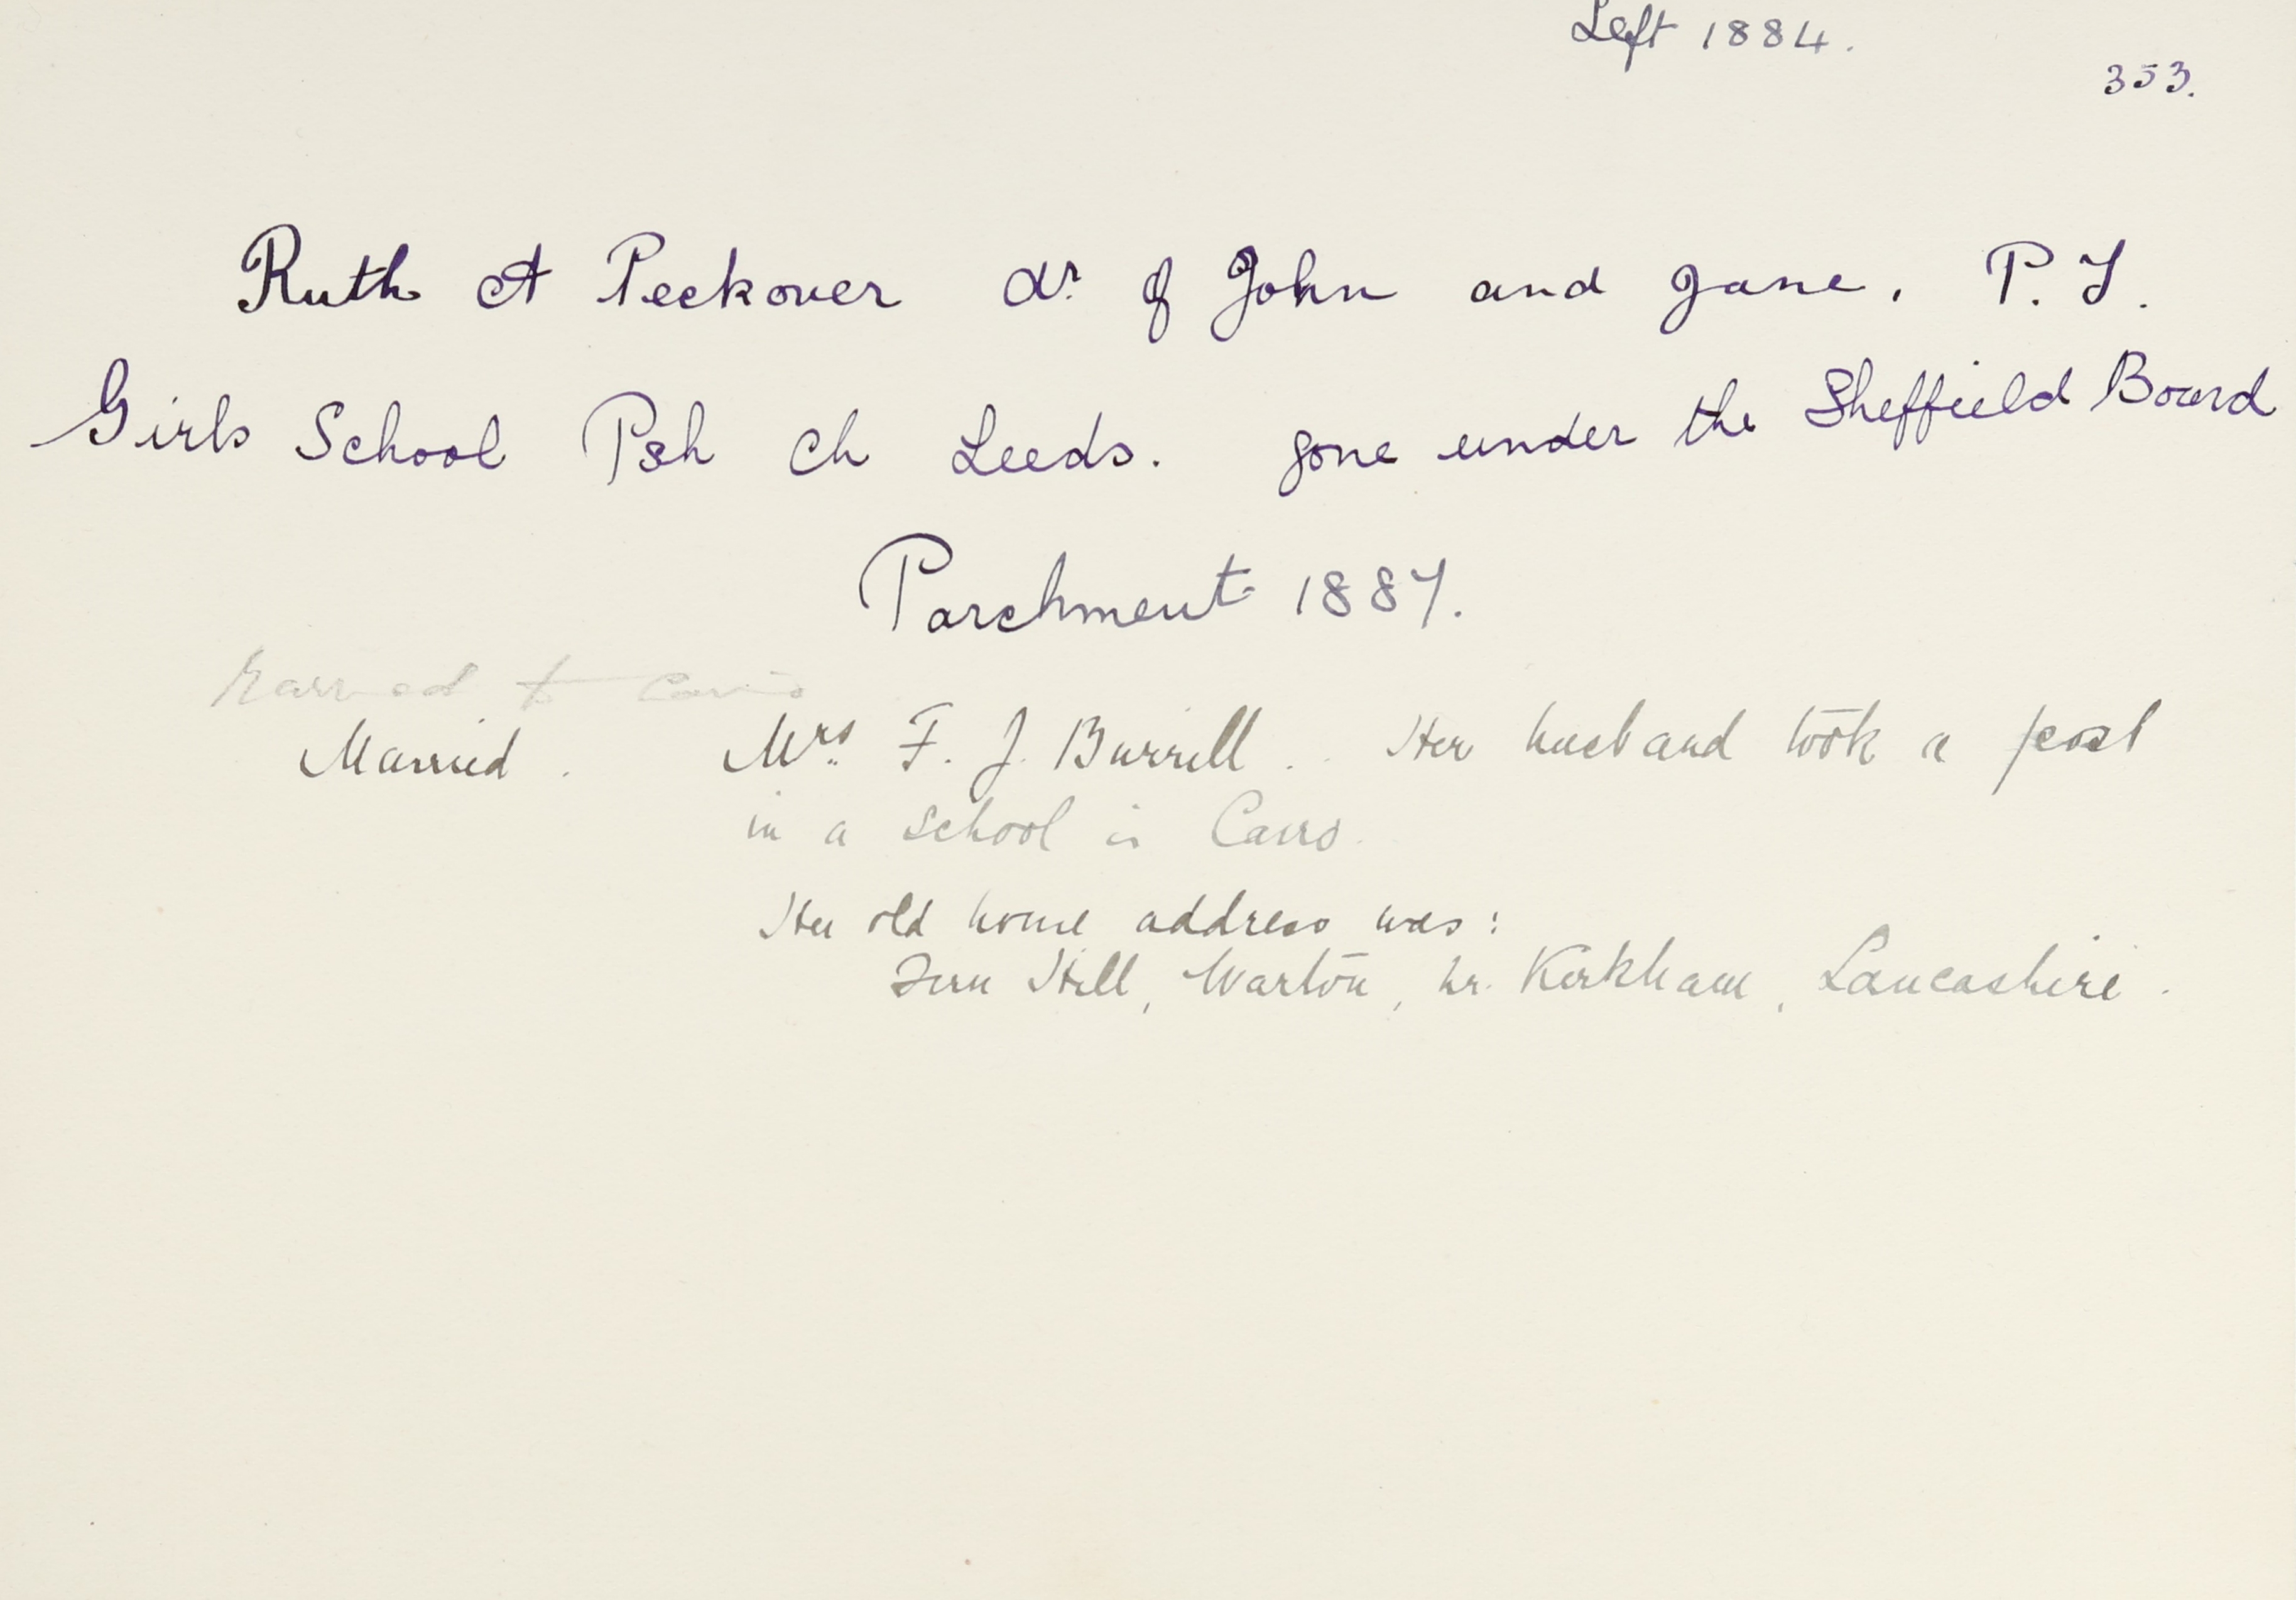 Left 1884.
353.
Ruth A Peckover dr. of John and Jane. P. T.
Girls School Psh Ch Leeds. gone under the Sheffield Board
Parchment 1887.
to Cairo
Married. Mrs. F. J. Burrill.. Her husband took a post
in a school in Cairo.
Her old home address was:
Fern Hill, Warton, nr. Kirkham, Lancashire.